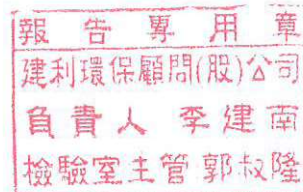 報告專用章
建利環保顧問(股)公司
負責人 李建南
檢驗室主管郭叔隆